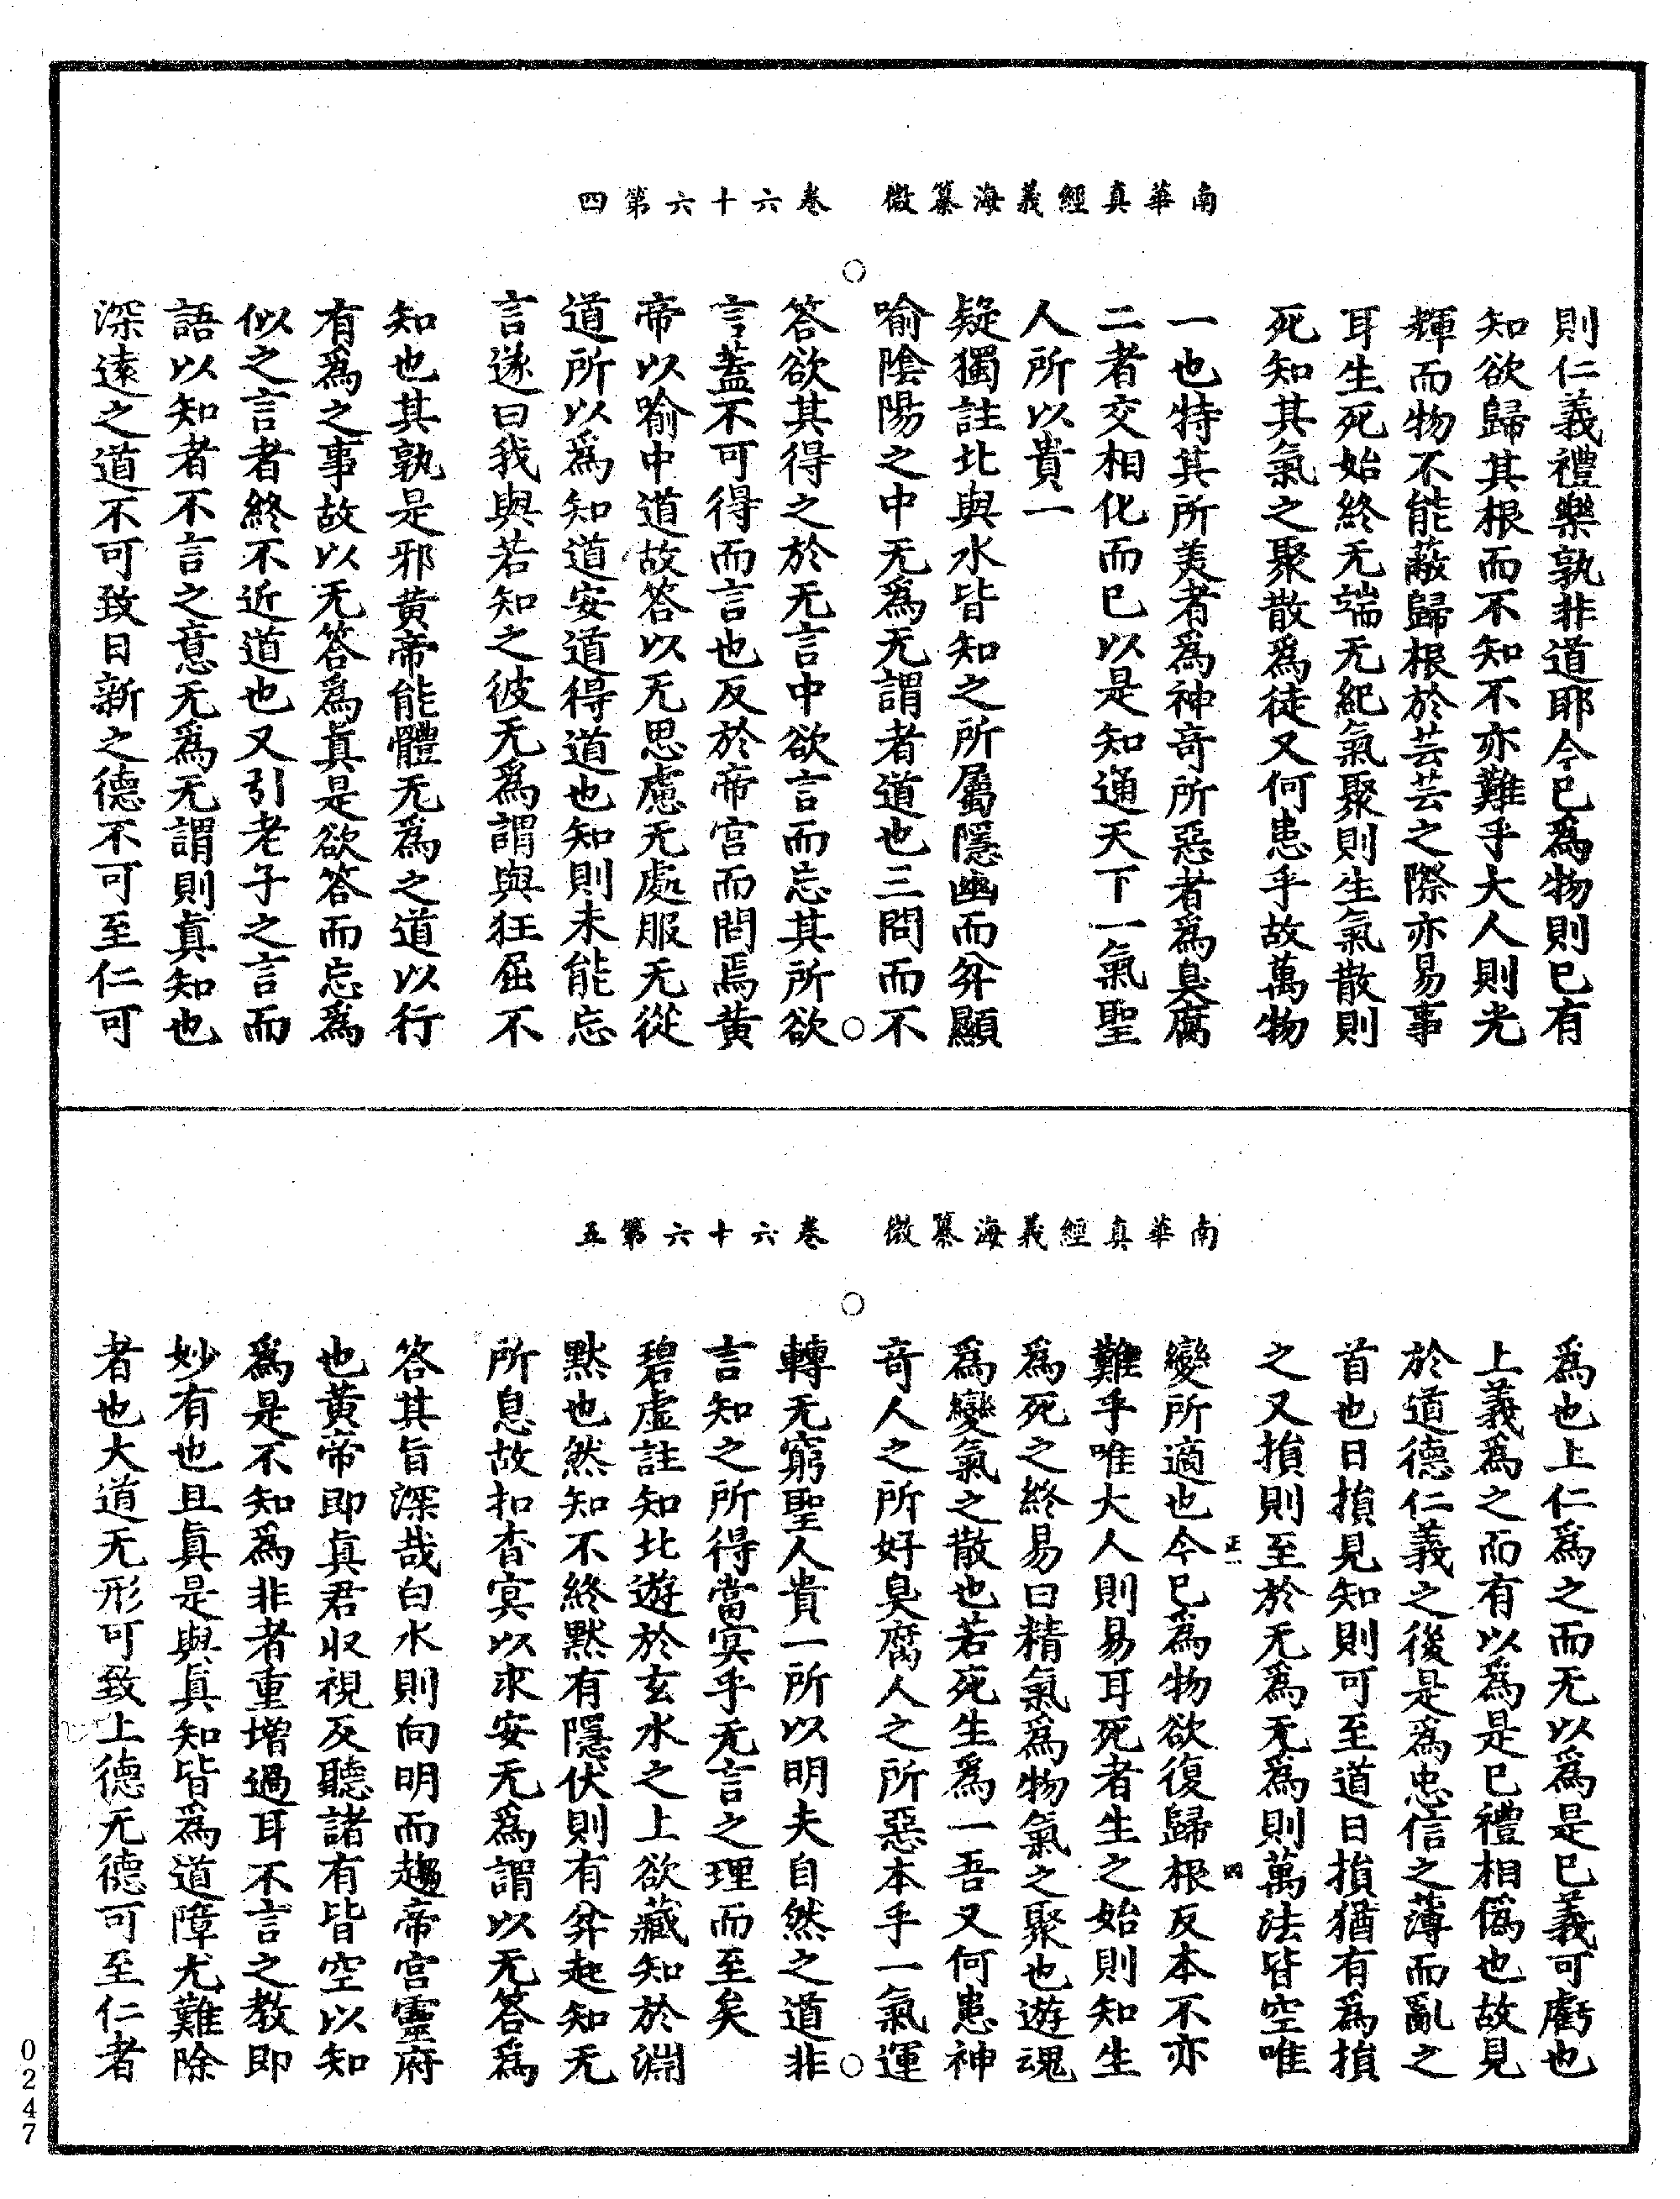 南華真經義海纂微　卷六十六第四
則仁義禮樂孰非道耶今已爲物則已有
知欲歸其根而不知不亦難乎大人則光
輝而物不能蔽歸根於芸芸之際亦易事
耳生死始終无端无紀氣聚則生氣散則
死知其氣之聚散爲徒又何患乎故萬物
一也特其所美者爲神竒所惡者爲臭腐
二者交相化而已以是知通天下一氣聖
人所以貴一
疑獨註北與水皆知之所屬隱幽而弅顯
喻陰陽之中无爲无謂者道也三問而不
答欲其得之於无言中欲言而忘其所欲
言蓋不可得而言也反於帝宮而問焉黄
帝以喻中道故答以无思慮无處服无從
道所以爲知道安道得道也知則未能忘
言遂曰我與若知之彼无爲謂與狂屈不
知也其孰是邪黄帝能體无爲之道以行
有爲之事故以无答爲真是欲答而忘爲
似之言者終不近道也又引老子之言而
語以知者不言之意无爲无謂則真知也
深遠之道不可致日新之德不可至仁可
南華真經義海纂微　卷六十六第五
爲也上仁爲之而无以爲是已義可虧也
上義爲之而有以爲是已禮相僞也故見
於道德仁義之後是爲忠信之薄而亂之
首也日損見知則可至道日損猶有爲損
之又損則至於无爲无爲則萬法皆空唯
變所適也今已爲物欲復歸根反本不亦
難乎唯大人則易耳死者生之始則知生
爲死之終易曰精氣爲物氣之聚也遊魂
爲變氣之散也若死生爲一吾又何患神
竒人之所好臭腐人之所惡本乎一氣運
轉无窮聖人貴一所以明夫自然之道非
言知之所得當㝠乎无言之理而至矣
碧虛註知北遊於玄水之上欲藏知於淵
默也然知不終默有隱伏則有弅起知无
所息故扣杳㝠以求安无爲謂以无答爲
答其旨深哉白水則向明而趨帝宮靈府
也黄帝即真君収視反聽諸有皆空以知
爲是不知爲非者重增過耳不言之教即
妙有也且真是與真知皆爲道障尤難除
者也大道无形可致上德无德可至仁者
正一
四
0247